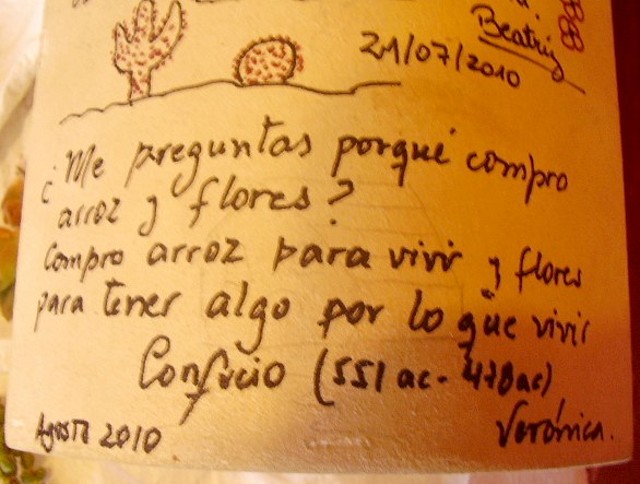 Beatriz
21/07/2010
¿Me preguntas porqué compro
arroz y flores?
Compro arroz para vivir y flores
para tener algo por lo que vivir
Confucio (551 ac - 478 ac)
Agosto 2010
Verónica.